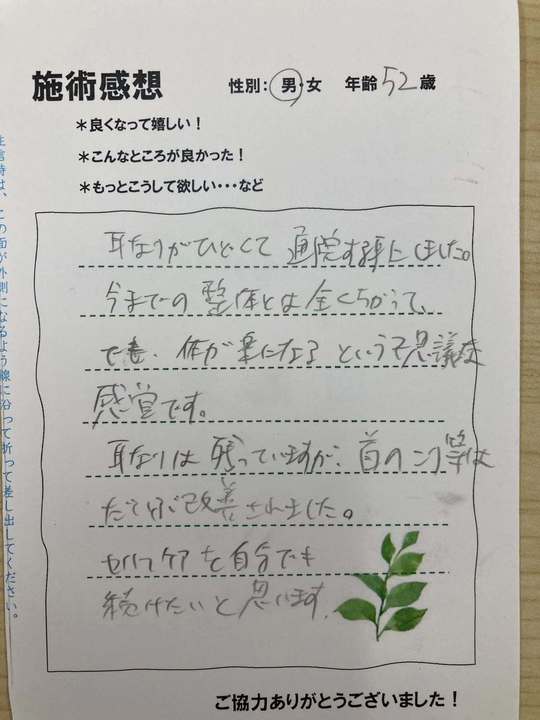 施術感想
性別：男・女 年齢 52 歳
＊良くなって嬉しい！
＊こんなところが良かった！
＊もっとこうして欲しい・・・など
耳なりがひどくて通院する事にしました。
今までの整体とは全くちがって、
でも、体が楽になるという不思議な
感覚です。
耳なりは残っていますが、首のこり等は
だいぶ改善されました。
セルフケアを自分でも
続けたいと思います。
ご協力ありがとうございました！
は、この面が外側になるよう線に沿って折って差し出してください。